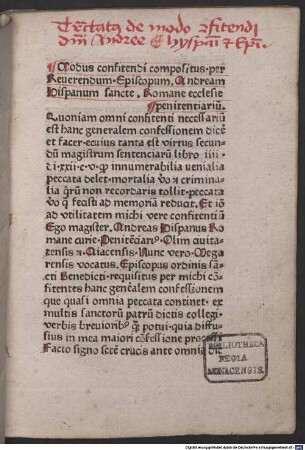 Tractatus de modo confitendi
dni Andree hyspani & Epi.
Modus confitendi compositus per
Reuerendum Episcopum. Andream
Hispanum sancte. Romane ecclesie
penitentiariū.
Quoniam omni confitenti necessariū
est hanc generalem confessionem dicē
et facer ecuius tanta est virtus secun
dū magistrum sentenciarū libro iiii
di xxii c v ꝙ innumerabilia venialia
peccata delet mortalia vo & crimina
lia qrū non recordaris tollit peccata
vo q̄ fecist ad memoriā reducit. Et iō
ad utilitatem michi vere confitentiū
Ego magister. Andreas Hispanus Ro
mane curie. Penitēciariꝰ. Olim ciuita
tensis & Aiacensis. Nunc vero Mega
rensis vocatus. Episcopus ordinis sā
cti Benedicti requisitus per michi cō
fitentes hanc genēalem confessionem
que quasi omnia peccata continet ex
multis sanctorū patrū dictis collegi
verbis breuioribꝰ q̄ potui quia diffu
sius in mea maiori cōfessione processi
Facto signo scte crucis ante omnia dic
BIBLIOTHECA
REGIA
MONACENSIS.